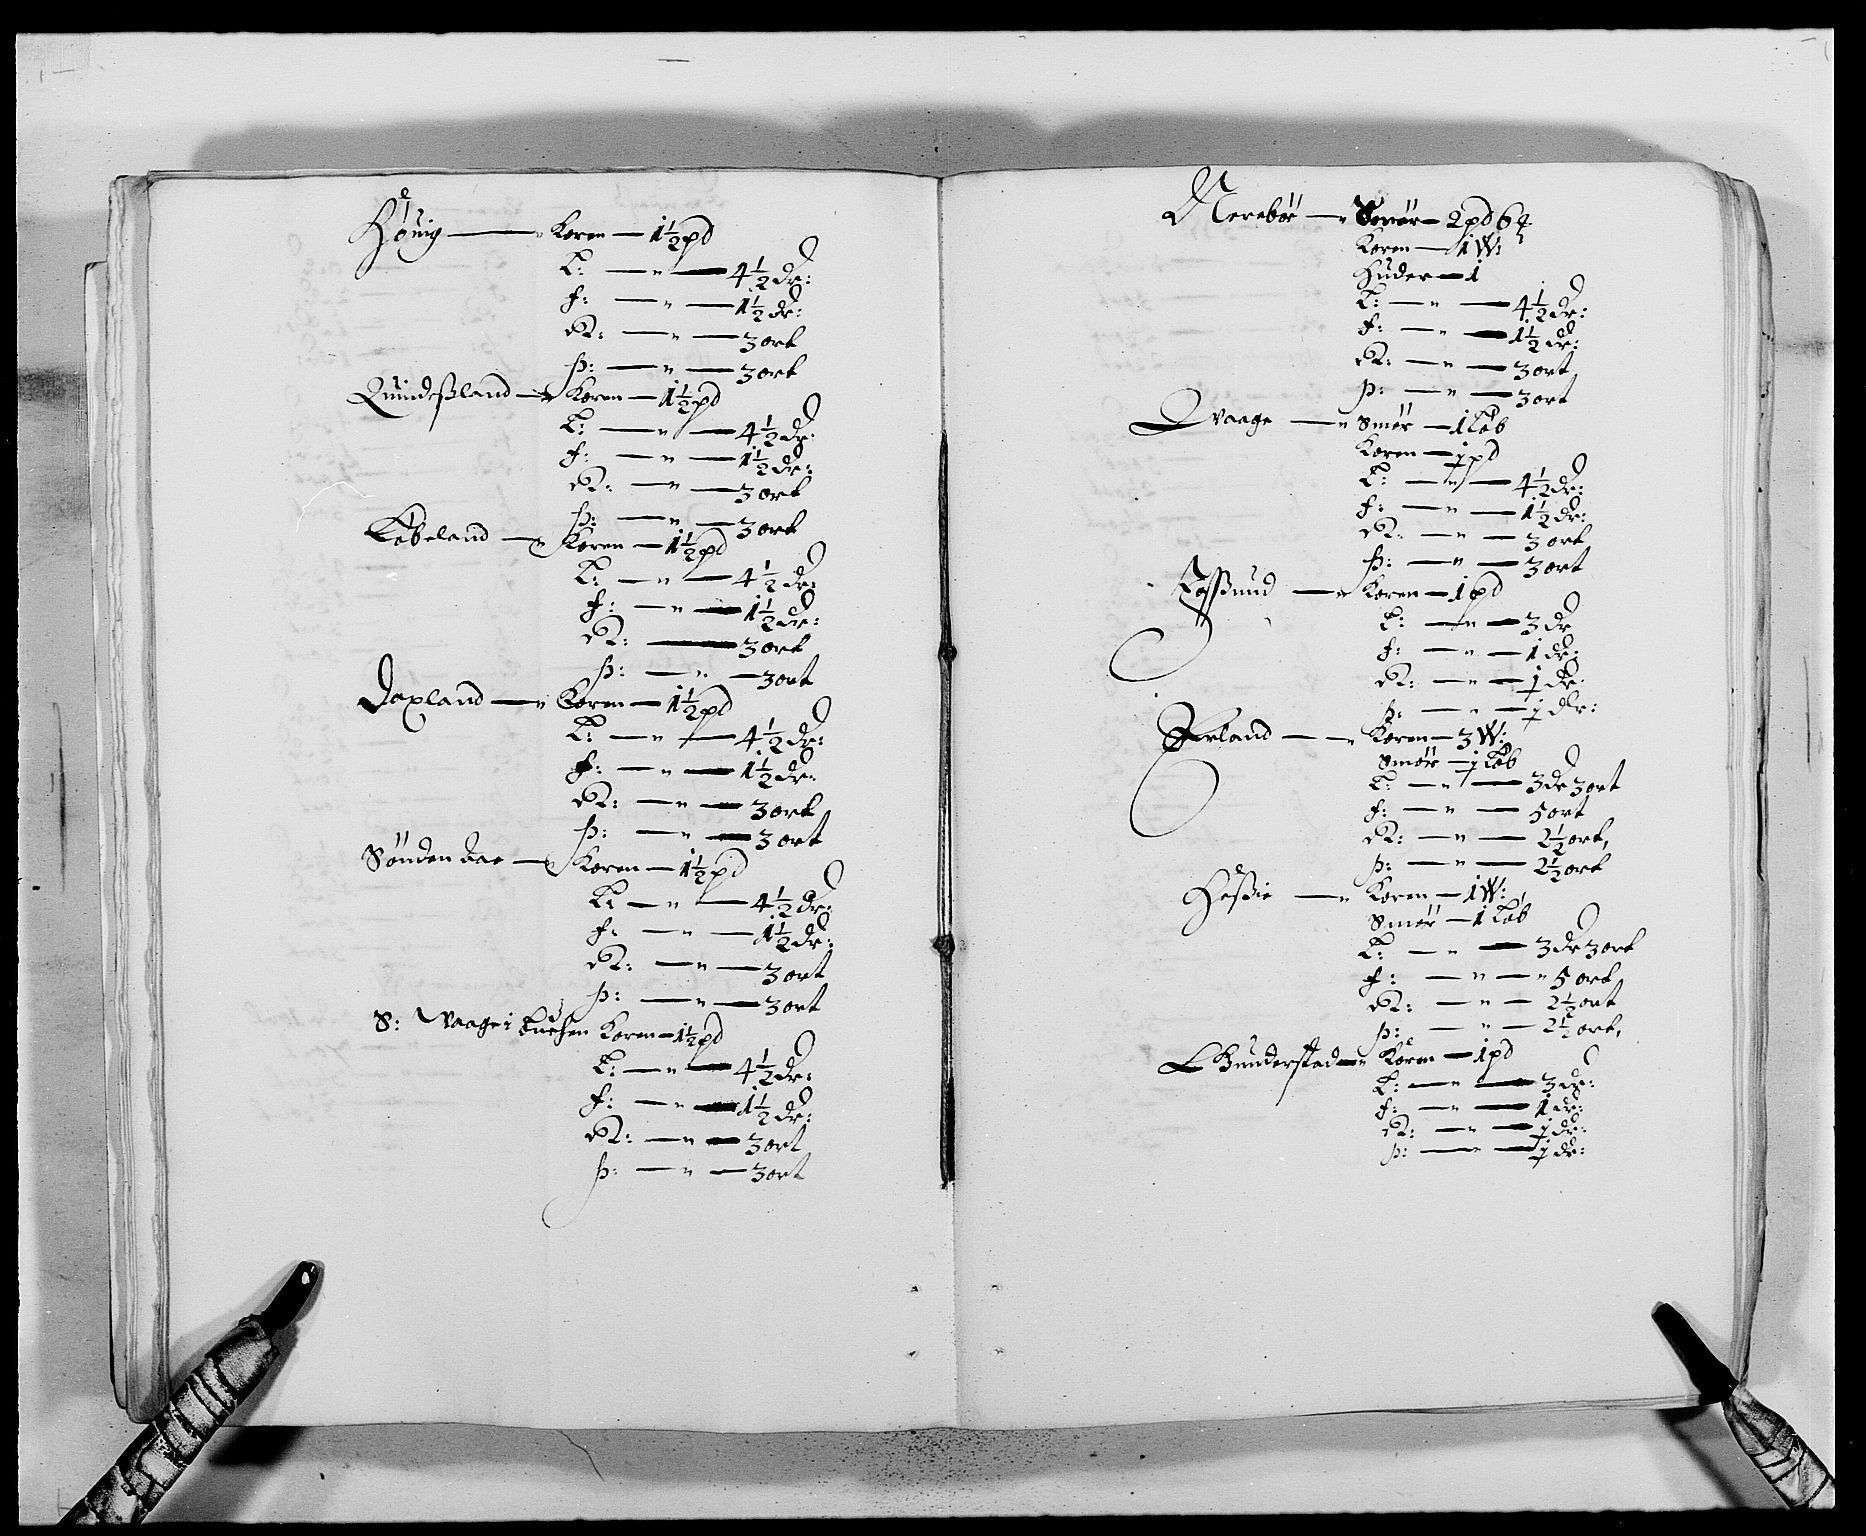 Høuig — Koren — 1½ pd
L: — " — 4½ dr:
f: — " — 1½ dr:
R: — " — 3 ort
Þ: — " — 3 ort
Quindeßland — Koren — 1½ pd
L: — " — 4½ dr:
f: — " — 1½ dr:
R: — " — 3 ort
Þ: — " — 3 ort
Løbeland — Koren — 1½ pd
L: — " — 4½ dr:
f: — " — 1½ dr:
R: — 3 ort
Þ: — " — 3 ort
Doxland — Koren — 1½ pd
L: — " — 4½ dr:
f: — " — 1½ dr:
R: — " — 3 ort
Þ: — " — 3 ort
Sønden aae — Koren — 1½ pd
L: — " — 4½ dr:
f: — " — 1½ dr:
R: — " — 3 ort
Þ: — " — 3 ort
S: Waage i Koren — 1½ pd
L: — " — 4½ dr:
f: — " — 1½ dr:
R: — " — 3 ort
Þ: — " — 3 ort
Nerebør — Smør — 2 pd 6
Koren — 1 W:
Huder — 1
L: — " — 4½ dr:
f: — " — 1½ dr:
R: — " — 3 ort
Þ: — " — 3 ort
Waage — Smør — 1 Løb
Koren — 1 pd
L: — " — 4½ dr:
f: — " — 1½ dr:
R: — " — 3 ort
Þ: — " — 3 ort
Koren — 1 pd
L: — " — 3 dr
f: — " — 1 dr:
R: — " — ½ dr:
Þ: — " — ½ dlr:
Erland — Koren — 3 W:
Smør — ½ Løb
L: — " — 3 dr 3 ort
f: — " — 5 ort
R: — " — 2½ ort,
Þ: — " — 2½ ort
Heßie — Koren — 1 W:
Smør — 1 Løb
L: — " — 3 dr 3 ort
f: — " — 5 ort
R: — " — 2½ ort
Þ: — " — 2½ ort,
Gunderstad — Koren — 1 pd
L: — " — 3 dr:
f: — " — 1 dr:
R: — " — ½ dr:
Þ: — " — ½ dr: